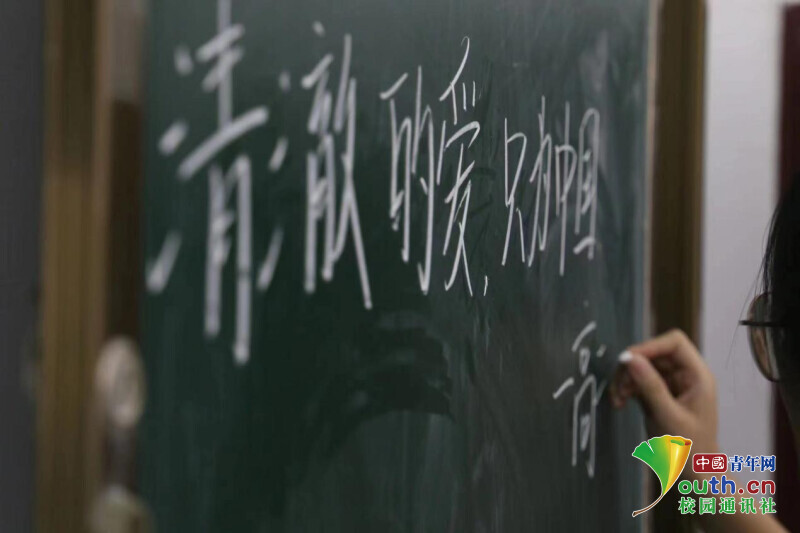 清澈的爱，只为中国
中國青年网
youth.cn
校园通讯社